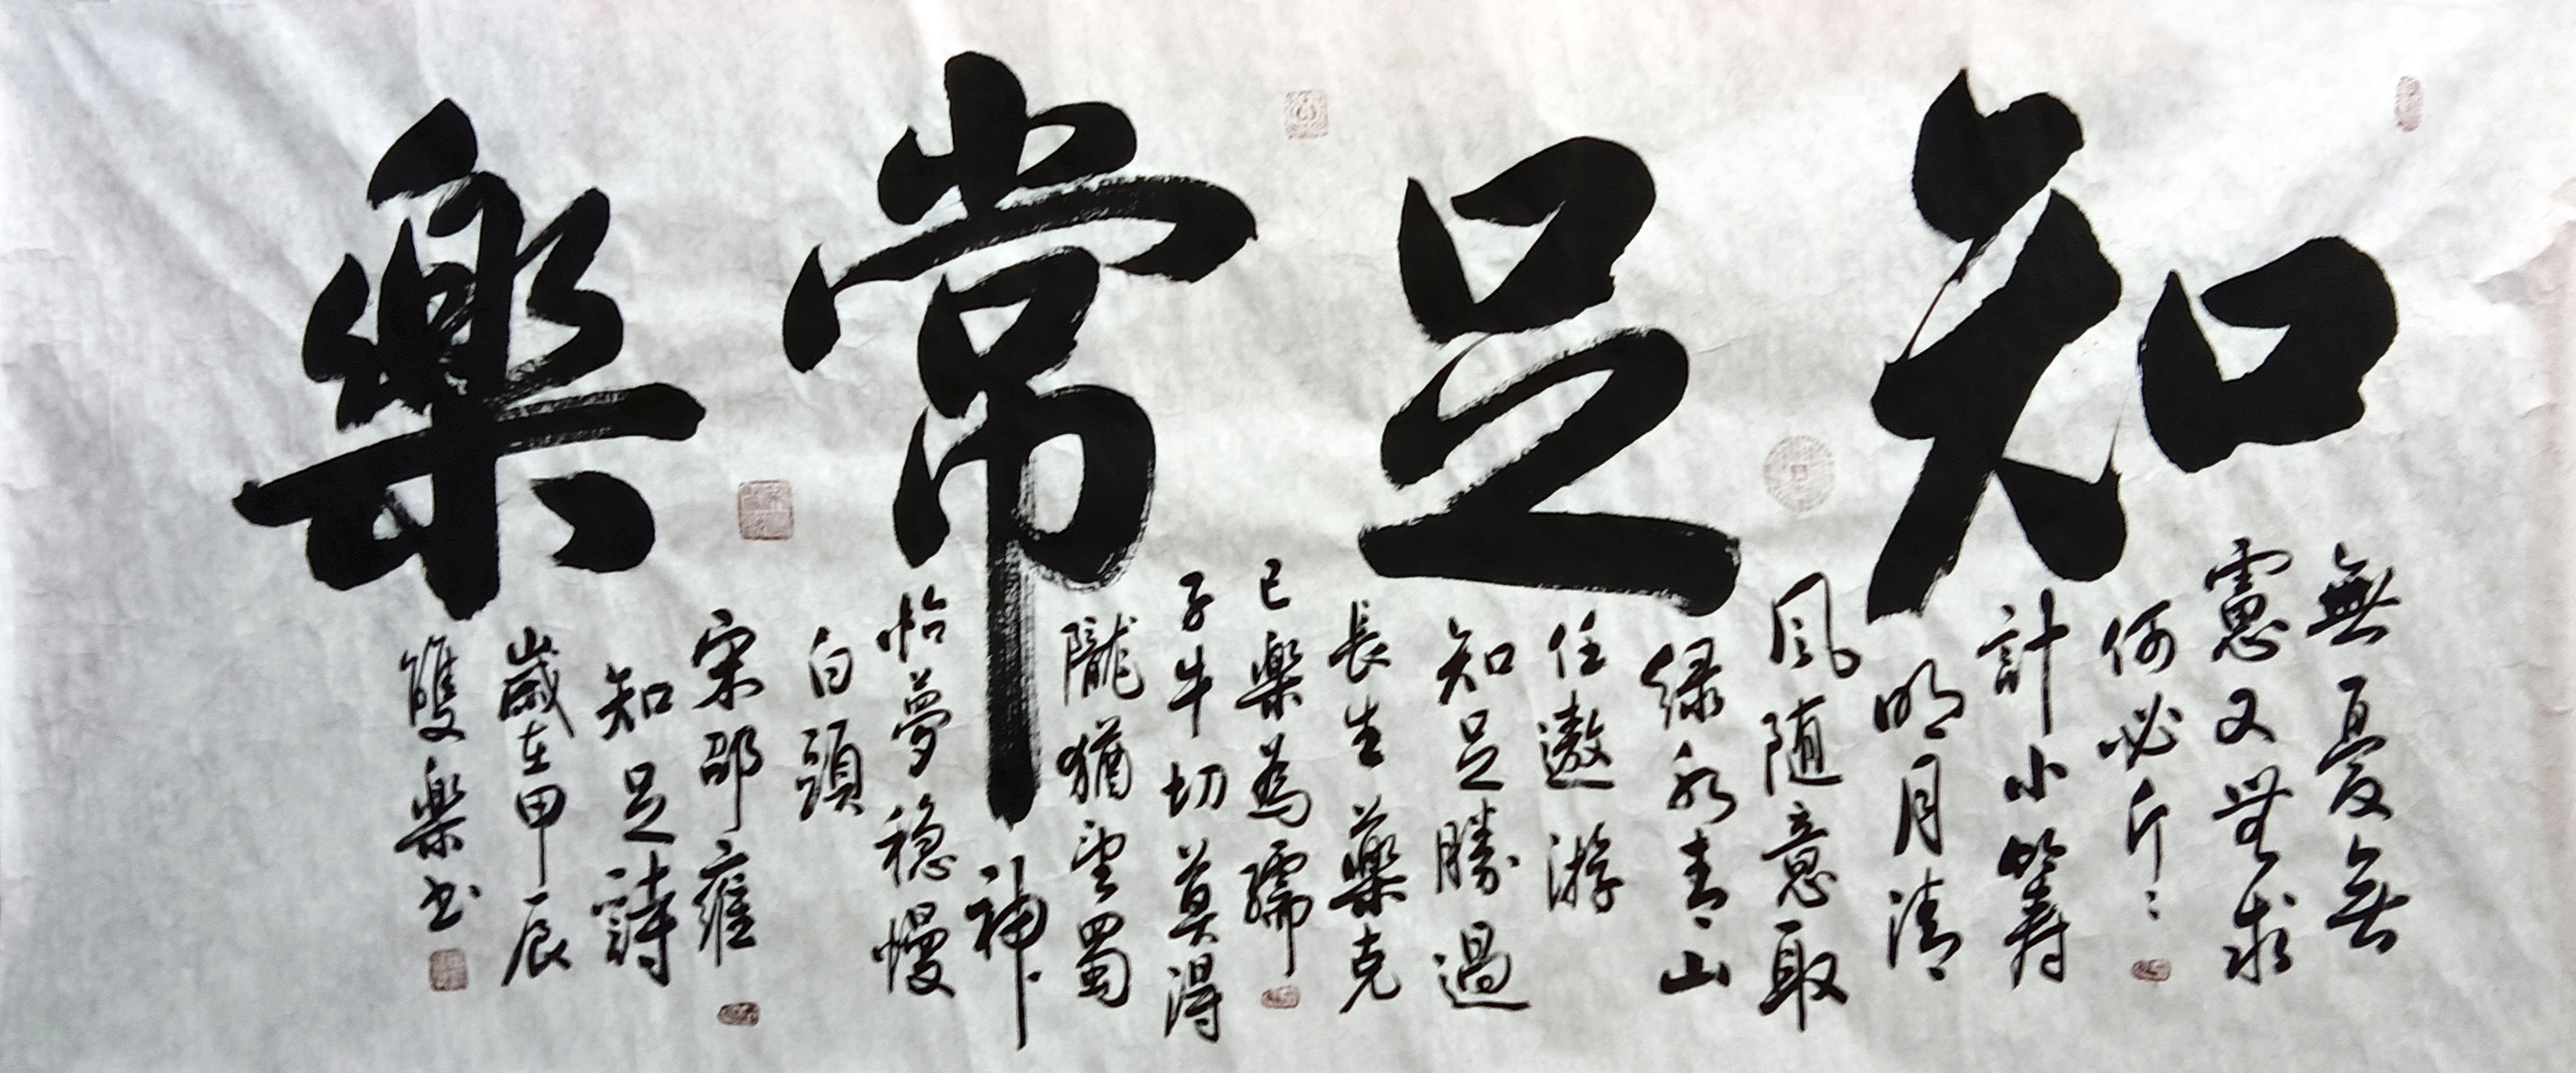 知足常樂
無憂無
慮又無求
何必斤〻
計小籌
明月清
風随意取
緑水青山
任遨游
知足勝過
長生藥克
己樂為孺
子牛切莫得
隴猶望蜀
神
怡夢穏慢
白頭
宋邵雍
知足詩
歲在甲辰
雙樂书